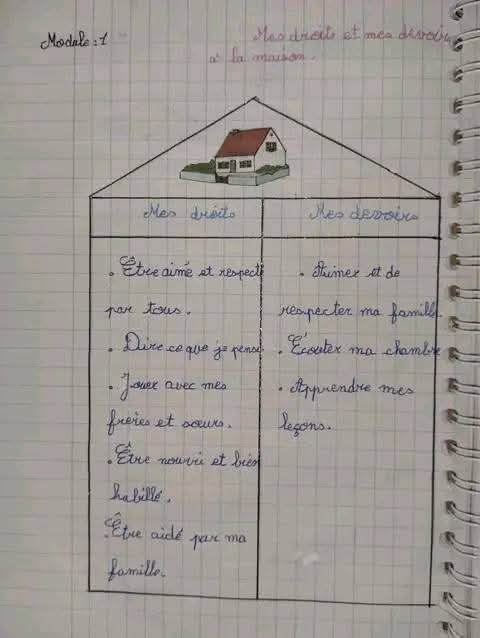 Module: 1
Mes droits et mes devoirs
à la maison.
Mes droits
Mes devoirs
. Être aimé et respecté
par tous.
. Dire ce que je pense
. Jouer avec mes
freres et sœurs.
. Être nourri et bien
habillé.
. Être aidé par ma
famille.
. Aimer et de
respecter ma famille.
. Écouter ma chambre
. Apprendre mes
leçons.